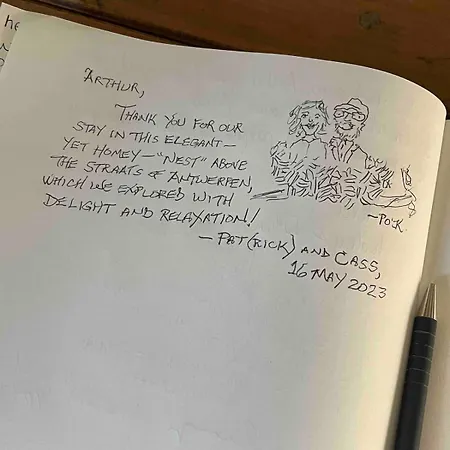 he
ARTHUR,
THANK YOU FOR OUR
STAY IN THIS ELEGANT—
YET HOMEY—"NEST" ABOVE
THE STRAATS OF ANTWERPEN,
WHICH WE EXPLORED WITH
DELIGHT AND RELAXATION!
—PAT(RICK) AND CASS,
16 MAY 2023